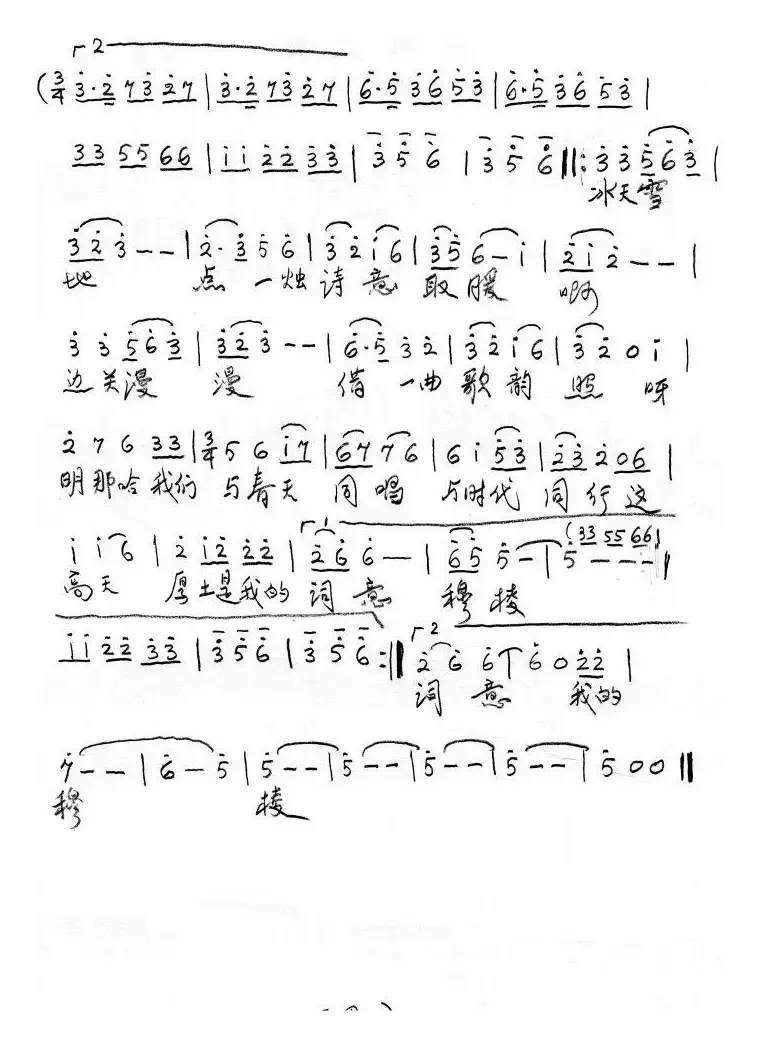 ┌2
(3/4 3·2 73 27 | 3·2 73 27 | 6·5 36 53 | 6·5 36 53 |
33 55 66 | ii 22 33 | 3 5 6 | 3 5 6 ‖: 3 3 5 6 3 |
冰天雪
3 2 3 - - | 2· 3 5 6 | 3 2 i 6 | 35 6 - i | 2 i 2 - - |
地 点一烛诗意取暖 啊
3 3 5 6 3 | 3 2 3 - - | 6·5 3 2 | 3 2 i 6 | 3 2 0 i |
边关漫 漫 借一曲歌韵 照 呀
2 7 6 33 | 3/4 5 6 i7 | 67 76 | 6 i 53 | 23 2 06 |
明那哈我们与春天同唱与时代同行这
┌1 (33 55 66
i i 6 | 2 i2 22 | 26 6 - | 65 5 - | 5 - - - ‖
高天 厚土是我的词意 穆棱
ii 22 33 | 3 5 6 | 3 5 6 :‖ ┌2 2 6 6 | 6 0 22 |
词意 我的
7 - - | 6 - 5 | 5 - - | 5 - - | 5 - - | 5 - - | 5 0 0 ‖
穆 棱